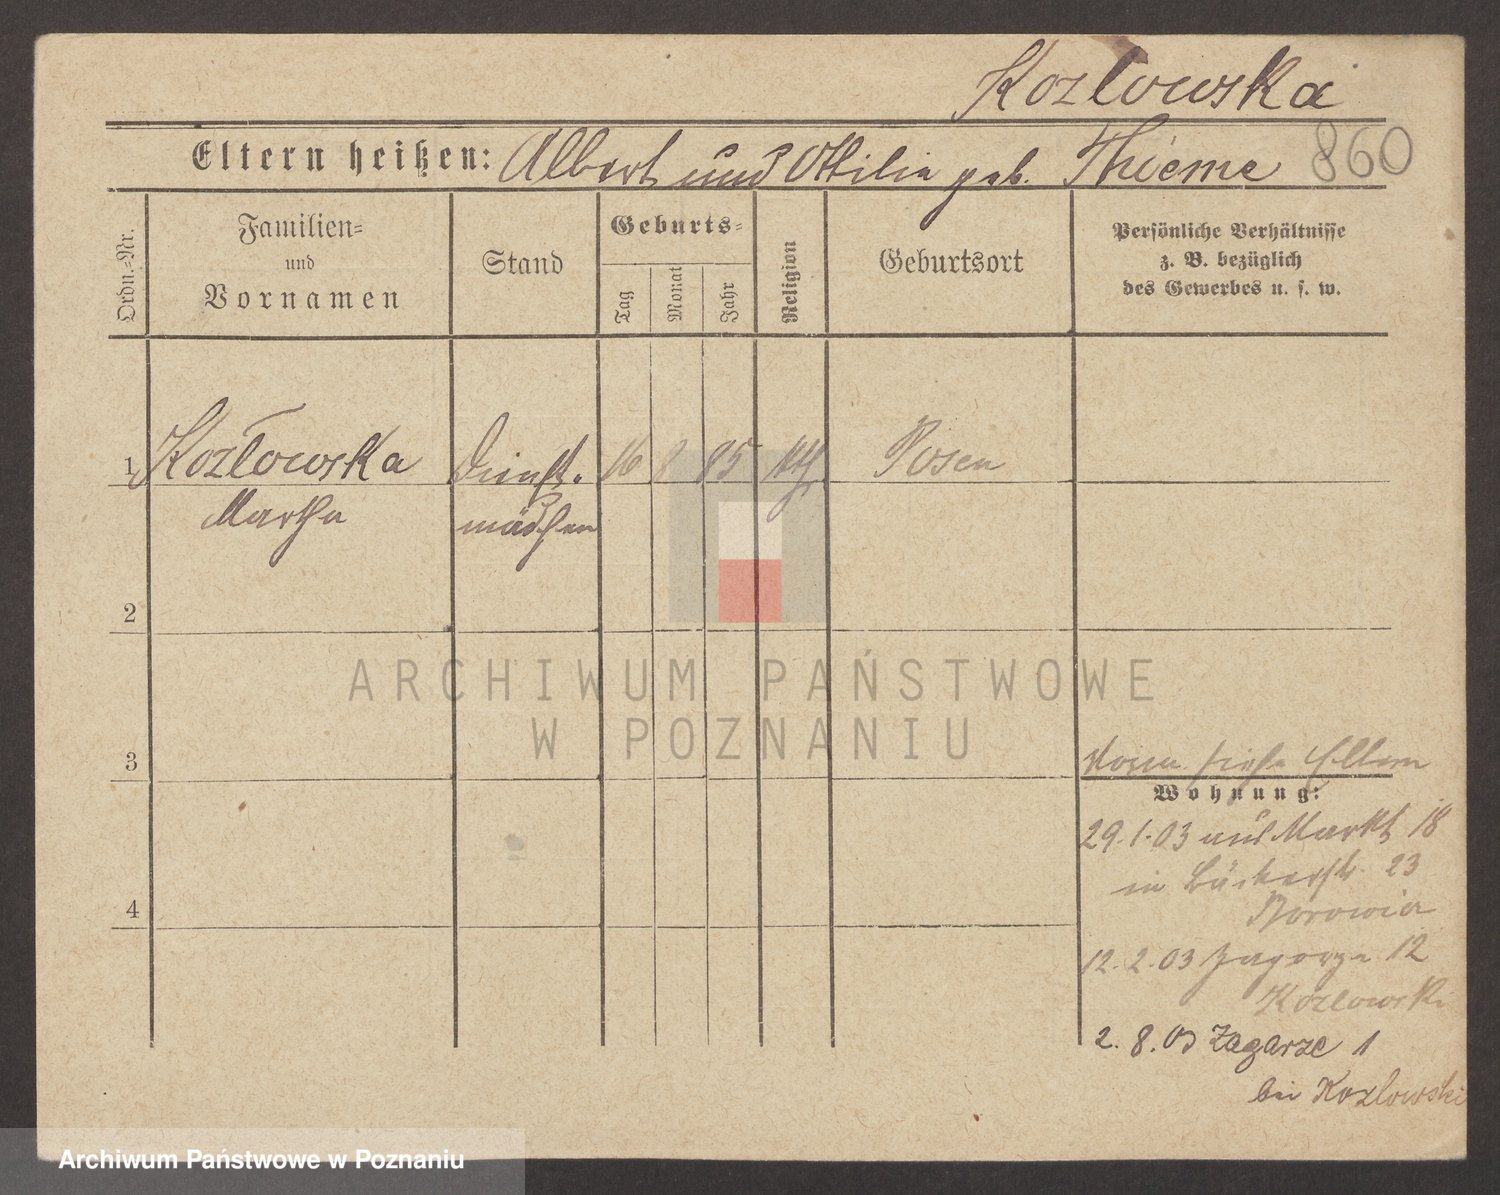 Kozlowska
Eltern heißen: Albert und Ottilie geb. Thieme 860
Ordn.-Nr.
Familien-
und
Vornamen
Stand
Geburts-
Tag
Monat
Jahr
Religion
Geburtsort
Persönliche Verhältnisse
z. B. bezüglich
des Gewerbes u. s. w.
1 Kozłowska Dienst- 16 8 85 kth Posen
Martha mädchen
2
ARCHIWUM PAŃSTWOWE
W POZNANIU
3
siehe Eltern
Wohnung:
29.1.03 aus Markt 18
in Bäckerstr. 23
Borowia
4
12.2.03 Zagorze 12
Kozlowski
2.8.03 Zagorze 1
bei Kozlowski
Archiwum Państwowe w Poznaniu